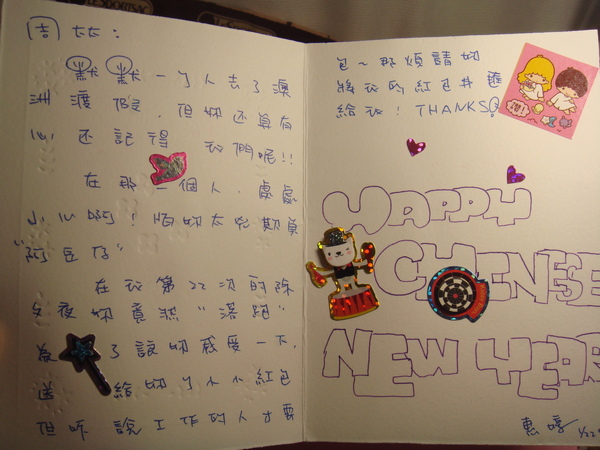 LESPORTSAC
周太太：
默默一个人去了澳
洲渡假，但妳还真有
心，还記得 我們呢!!
在那一個人，處處
小心啊！怕妳太兇欺負
"阿豆仔"
在我第22次的除
夕夜妳竟然"落跑"
為了 妳感受一下，
給妳个小小紅包
但 說工作的人才要
包～那煩請妳
將我的紅包 匯
給我！THANKS
HAPPY
CHINESE
NEW YEAR
惠婷 1/22